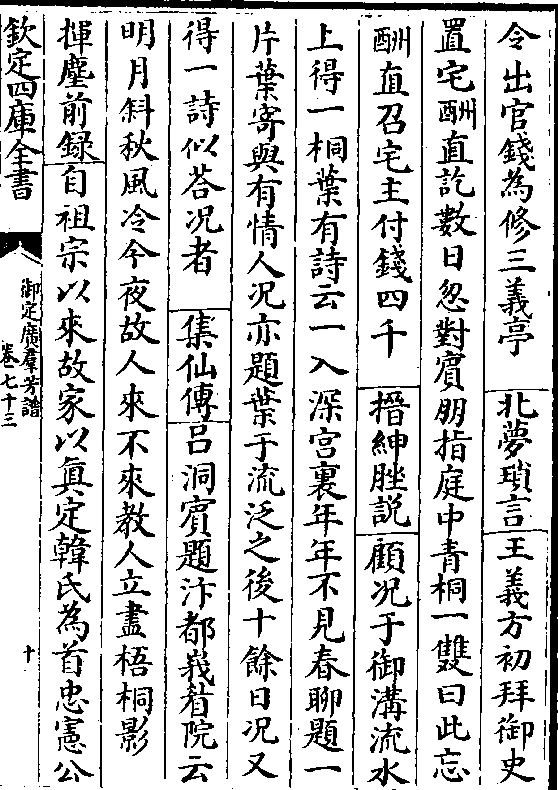 令出官錢為修三義亭　北夢瑣言王義方初拜御史
置宅酬直訖數日忽對賓朋指庭中青桐一雙曰此忘
酬直召宅主付錢四千　搢紳脞説顧况于御溝流水
上得一桐葉有詩云一入深宫裏年年不見春聊題一
片葉寄與有情人况亦題葉于流泛之後十餘日况又
得一詩似荅况者　集仙傳吕洞賓題汴都峩䇯院云
明月斜秋風冷今夜故人來不來教人立盡梧桐影
揮麈前録自祖宗以來故家以真定韓氏為首忠憲公
欽定四庫全書
御定廣羣芳譜
卷七十三
十